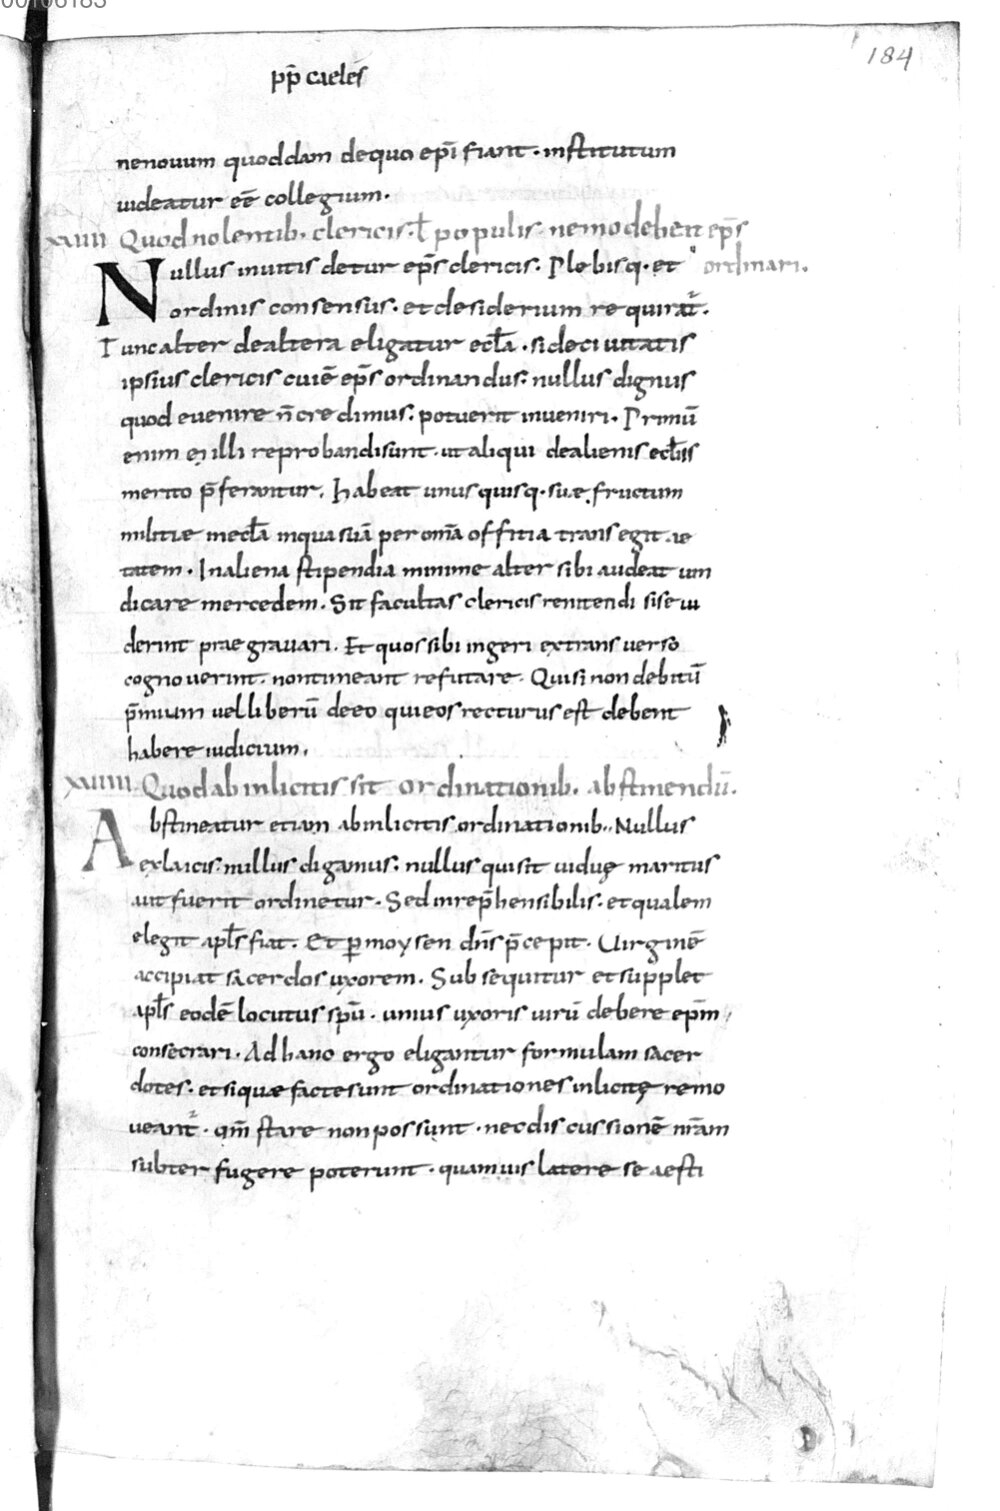 00106183
184
pp̄ caeles̄
nenouum quoddam dequo ep̄i fiant · institutum
uideatur eē collegium ·
xuiiii Quod nolentib · clericis · ł populis nemo debeat ep̄s
ordinari ·
Nullus inuitis detur ep̄s clericis · Plebisq · et
ordinis consensus · et desiderium requirat᷑ ·
Tunc alter dealtera eligatur ecła · sideciuitatis
ipsius clericis cuiē ep̄s ordinandus · nullus dignus
quod evenire n̄ credimus · potuerit inueniri · Primū
enim ei illi reprobandi sunt · ut aliqui dealienis ecłiis
merito p̄ferantur · habeat unus quisq · suę fructum
militiæ inecła inqua suā per om̄ia offitia transegit · æ
tatem · Inaliena stipendia minime alter sibi audeat uin
dicare mercedem · Sit facultas clericis renitendi sise ui
derint prae grauari · Et quos sibi ingeri extransuerso
cognouerint · nontimeant refutare · Quisi non debitū
p̄mium uel liberū deeo quieos recturus est debent
habere iudicium ·
xuiiiii Quod ab inlicitis sit ordinationib · abstinendū ·
Abstineatur etiam ab inlicitis ordinationib · Nullus
exlaicis · nullus digamus · nullus quisit uiduę maritus
aut fuerit ordinetur · Sed inrep̄hensibilis · et qualem
elegit apłs fiat · Et ꝑ moysen dn̄s p̄cepit · Uirginē
accipiat sacerdos uxorem · Subsequitur et supplet
apłs eodē locutus spū · unius uxoris uirū debere ep̄m
consecrari · Ad hanc ergo eligantur formulam sacer
dotes · et siquæ facte sunt ordinationes inlicitę remo
ueant᷑ · qm̄ stare non possunt · nec discussionē nr̄am
subterfugere poterunt · quamuis latere se aesti